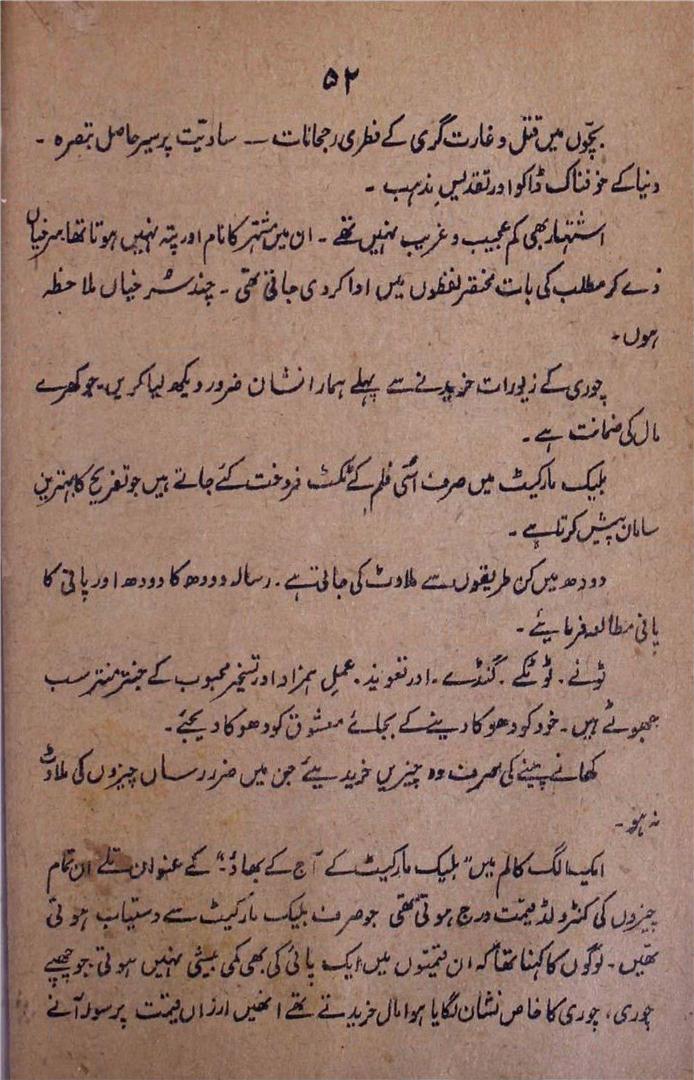 ۵۲
بچّوں میں قتل و غارت گری کے فطری رجحانات — سادیّت پر سیر حاصل تبصرہ ۔
دنیا کے خوفناک ڈاکو اور تقدیسِ مذہب ۔
اشتہار بھی کم عجیب و غریب نہیں تھے ۔ ان میں مشتہر کا نام اور پتہ نہیں ہوتا تھا سرخیاں
دے کر مطلب کی بات مختصر لفظوں میں ادا کر دی جاتی تھی ۔ چند سُرخیاں ملاحظہ
ہوں۔
چوری کے زیورات خریدنے سے پہلے ہمارا نشان ضرور دیکھ لیا کریں۔ جو کھرے
مال کی ضمانت ہے ۔
بلیک مارکیٹ میں صرف اُسی فلم کے ٹکٹ فروخت کئے جاتے ہیں جو تفریح کا بہترین
سامان پیش کرتا ہے ۔
دودھ میں کن طریقوں سے ملاوٹ کی جاتی ہے ۔ رسالہ دودھ کا دودھ اور پانی کا
پانی مطالعہ فرمایئے ۔
ٹونے ۔ ٹوٹکے ۔ گنڈے ۔ اور تعویذ ۔ عملِ ہمزاد اور تسخیرِ محبوب کے جنتر منتر سب
جھوٹے ہیں ۔ خود کو دھوکا دینے کے بجائے معشوق کو دھوکا دیجئے ۔
کھانے پینے کی صرف وہ چیزیں خریدیئے جن میں ضرر رساں چیزوں کی ملاوٹ
نہ ہو ۔
ایک الگ کالم میں "بلیک مارکیٹ کے آج کے بھاؤ" کے عنوان تلے ان تمام
چیزوں کی کنٹرولڈ قیمت درج ہوتی تھی جو صرف بلیک مارکیٹ سے دستیاب ہوتی
تھیں ۔ لوگوں کا کہنا تھا کہ ان قیمتوں میں ایک پائی کی بھی کمی بیشی نہیں ہوتی۔ جو چھپے
چوری، چوری کا خاص نشان لگایا ہوا مال خریدتے تھے انھیں ارزاں قیمت پر سولہ آنے